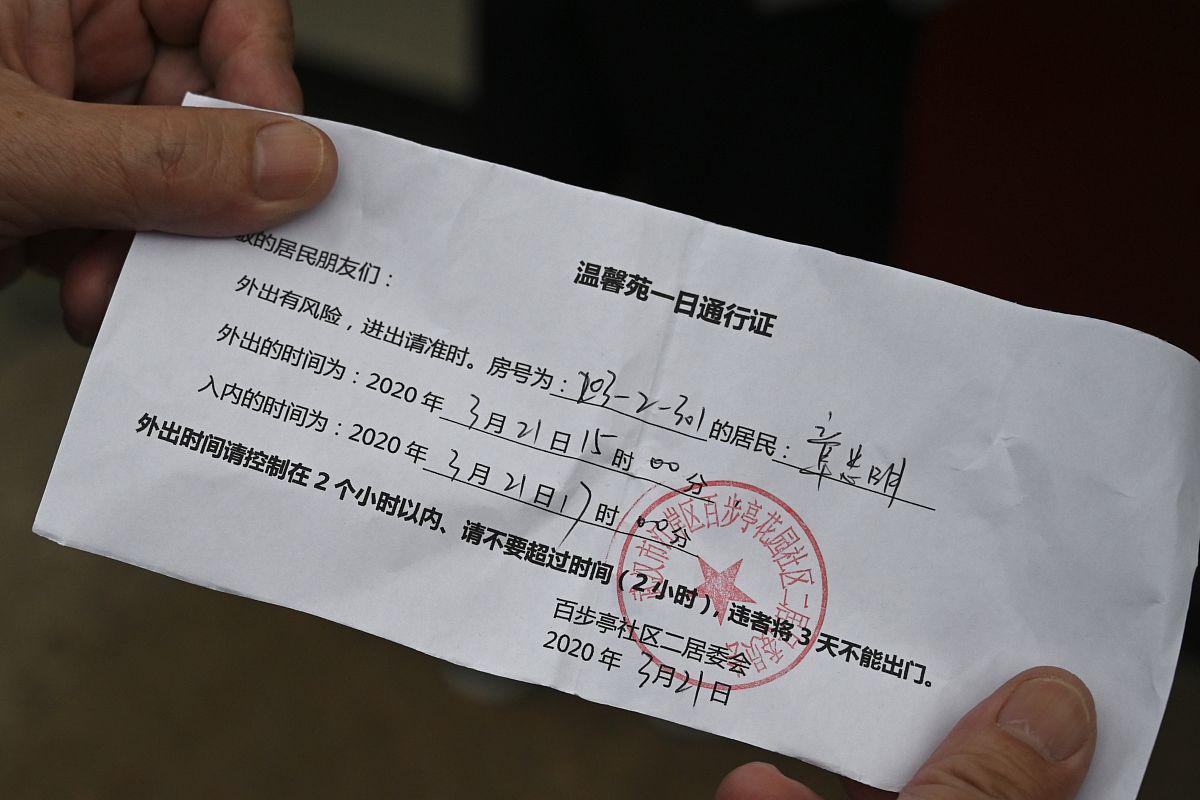 温馨苑一日通行证
敬的居民朋友们：
外出有风险，进出请准时。房号为：103-2-301的居民：章忠明
外出的时间为：2020年3月21日15时00分
入内的时间为：2020年3月21日17时00分
外出时间请控制在2个小时以内、请不要超过时间（2小时），违者将3天不能出门。
百步亭社区二居委会
2020年3月21日
武汉市江岸区百步亭花园社区二居委员会